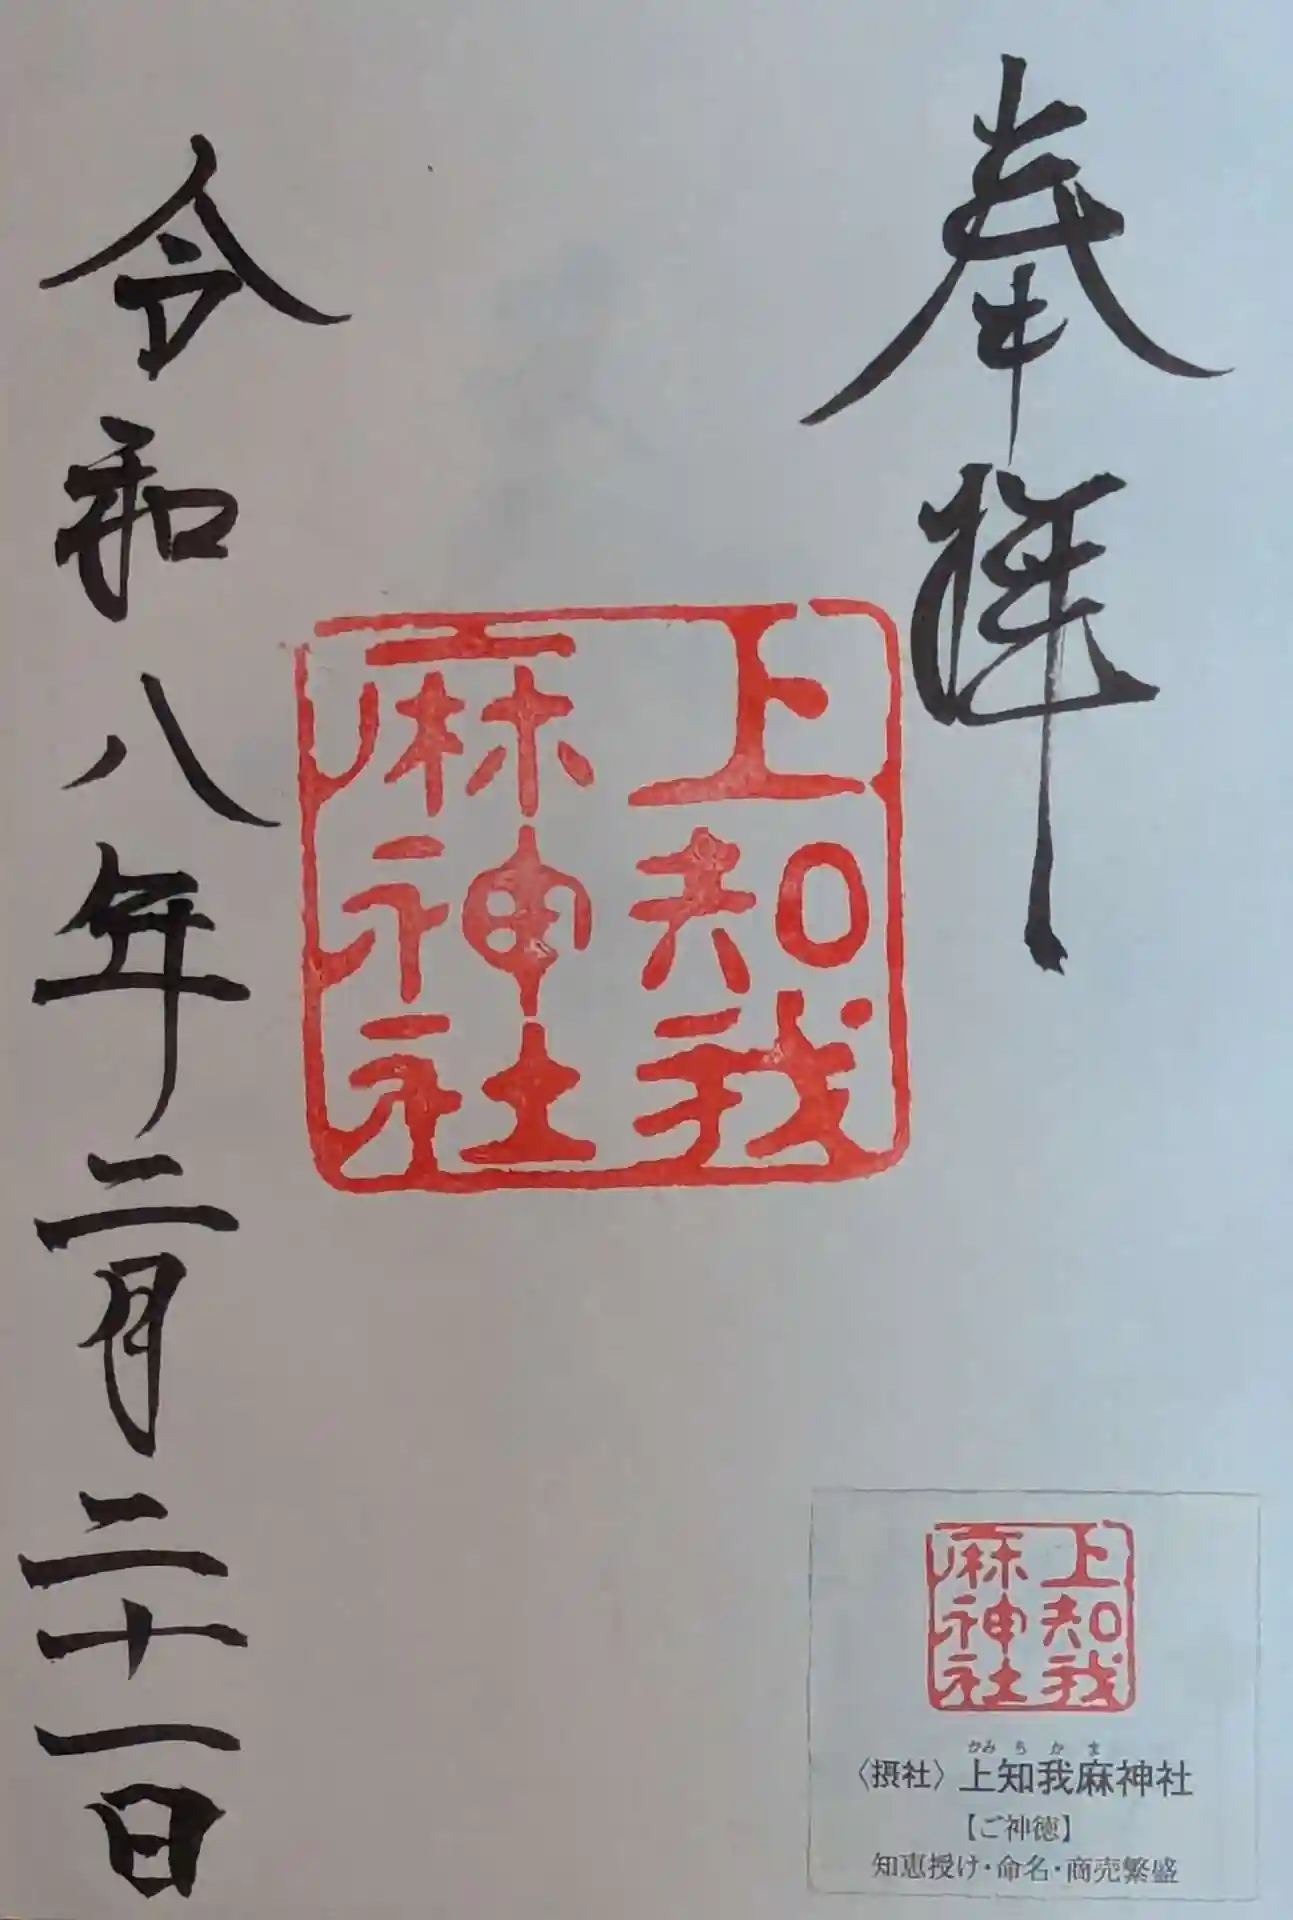 奉拝
上知我
麻神社
令和八年二月二十一日
上知我
麻神社
かみちかま
〈摂社〉上知我麻神社
【ご神徳】
知恵授け・命名・商売繁盛